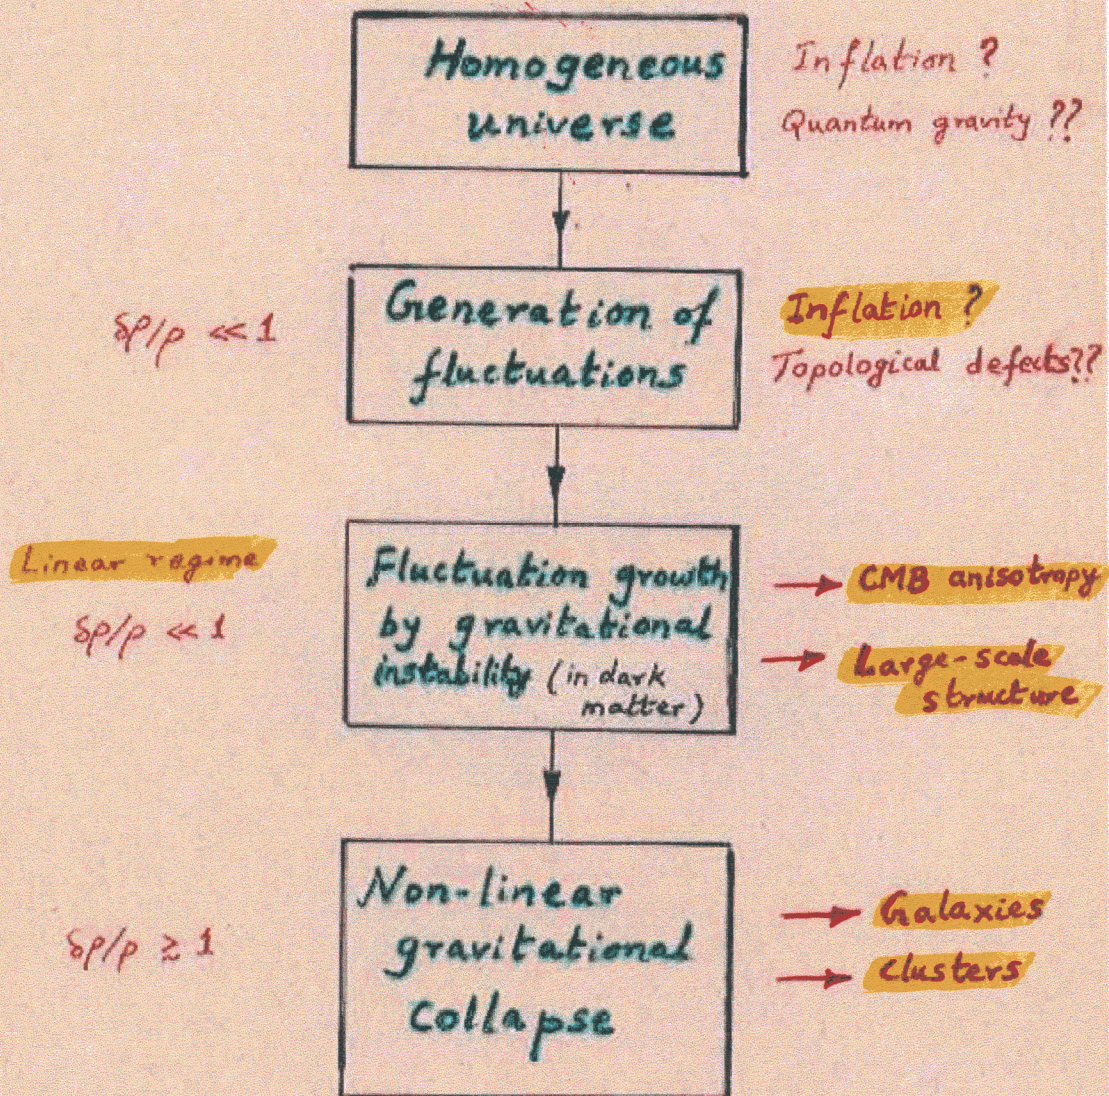 Homogeneous
universe
Inflation ?
Quantum gravity ??
δρ/ρ << 1
Generation of
fluctuations
Inflation ?
Topological defects??
Linear regime
δρ/ρ << 1
Fluctuation growth
by gravitational
instability (in dark
matter)
→ CMB anisotropy
→ Large-scale
structure
δρ/ρ ≳ 1
Non-linear
gravitational
collapse
→ Galaxies
→ clusters